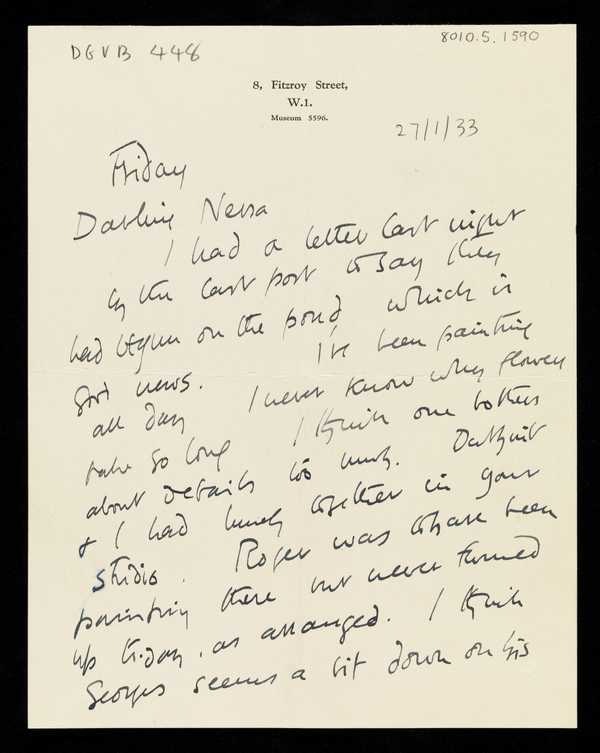 DGVB 448
8010.5.1590
8, Fitzroy Street,
W.1.
Museum 5596.
27/1/33
Friday
Darling Nessa
I had a letter last night
by the last post to say they
had begun on the pond which is
good news. I've been painting
all day I never know why flowers
take so long I think one bothers
about details too much.
& I had lunch together in your
studio. Roger was to have been
painting there but never turned
up to-day, as arranged. I think
Georges seems a bit down on his